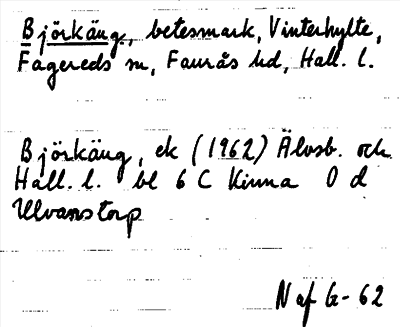 Björkäng, betesmark, Vinterhylte,
Fagereds sn, Faurås hd, Hall. l.
Björkäng, ek (1962) Älvsb. och
Hall. l. bl 6 C Kinna 0 d
Ulvanstorp
N af G-62